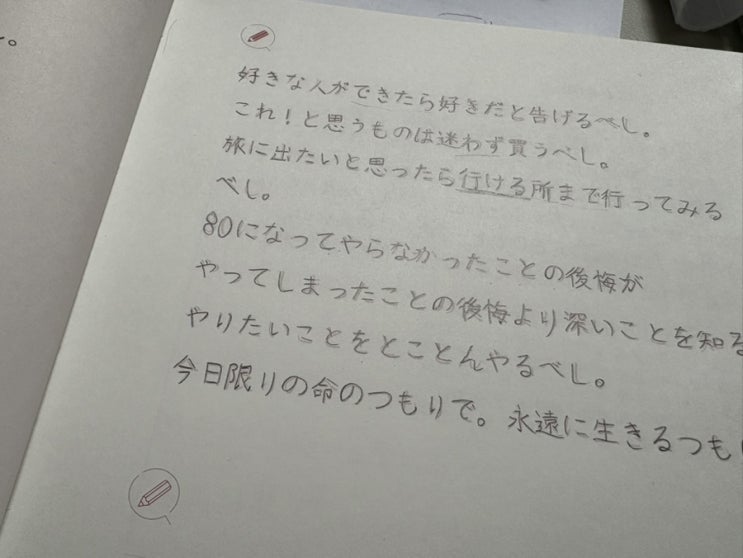 。
好きな人ができたら好きだと告げるべし。
これ！と思うものは迷わず買うべし。
旅に出たいと思ったら行ける所まで行ってみる
べし。
80になってやらなかったことの後悔が
やってしまったことの後悔より深いことを知る
やりたいことをとことんやるべし。
今日限りの命のつもりで。永遠に生きるつも